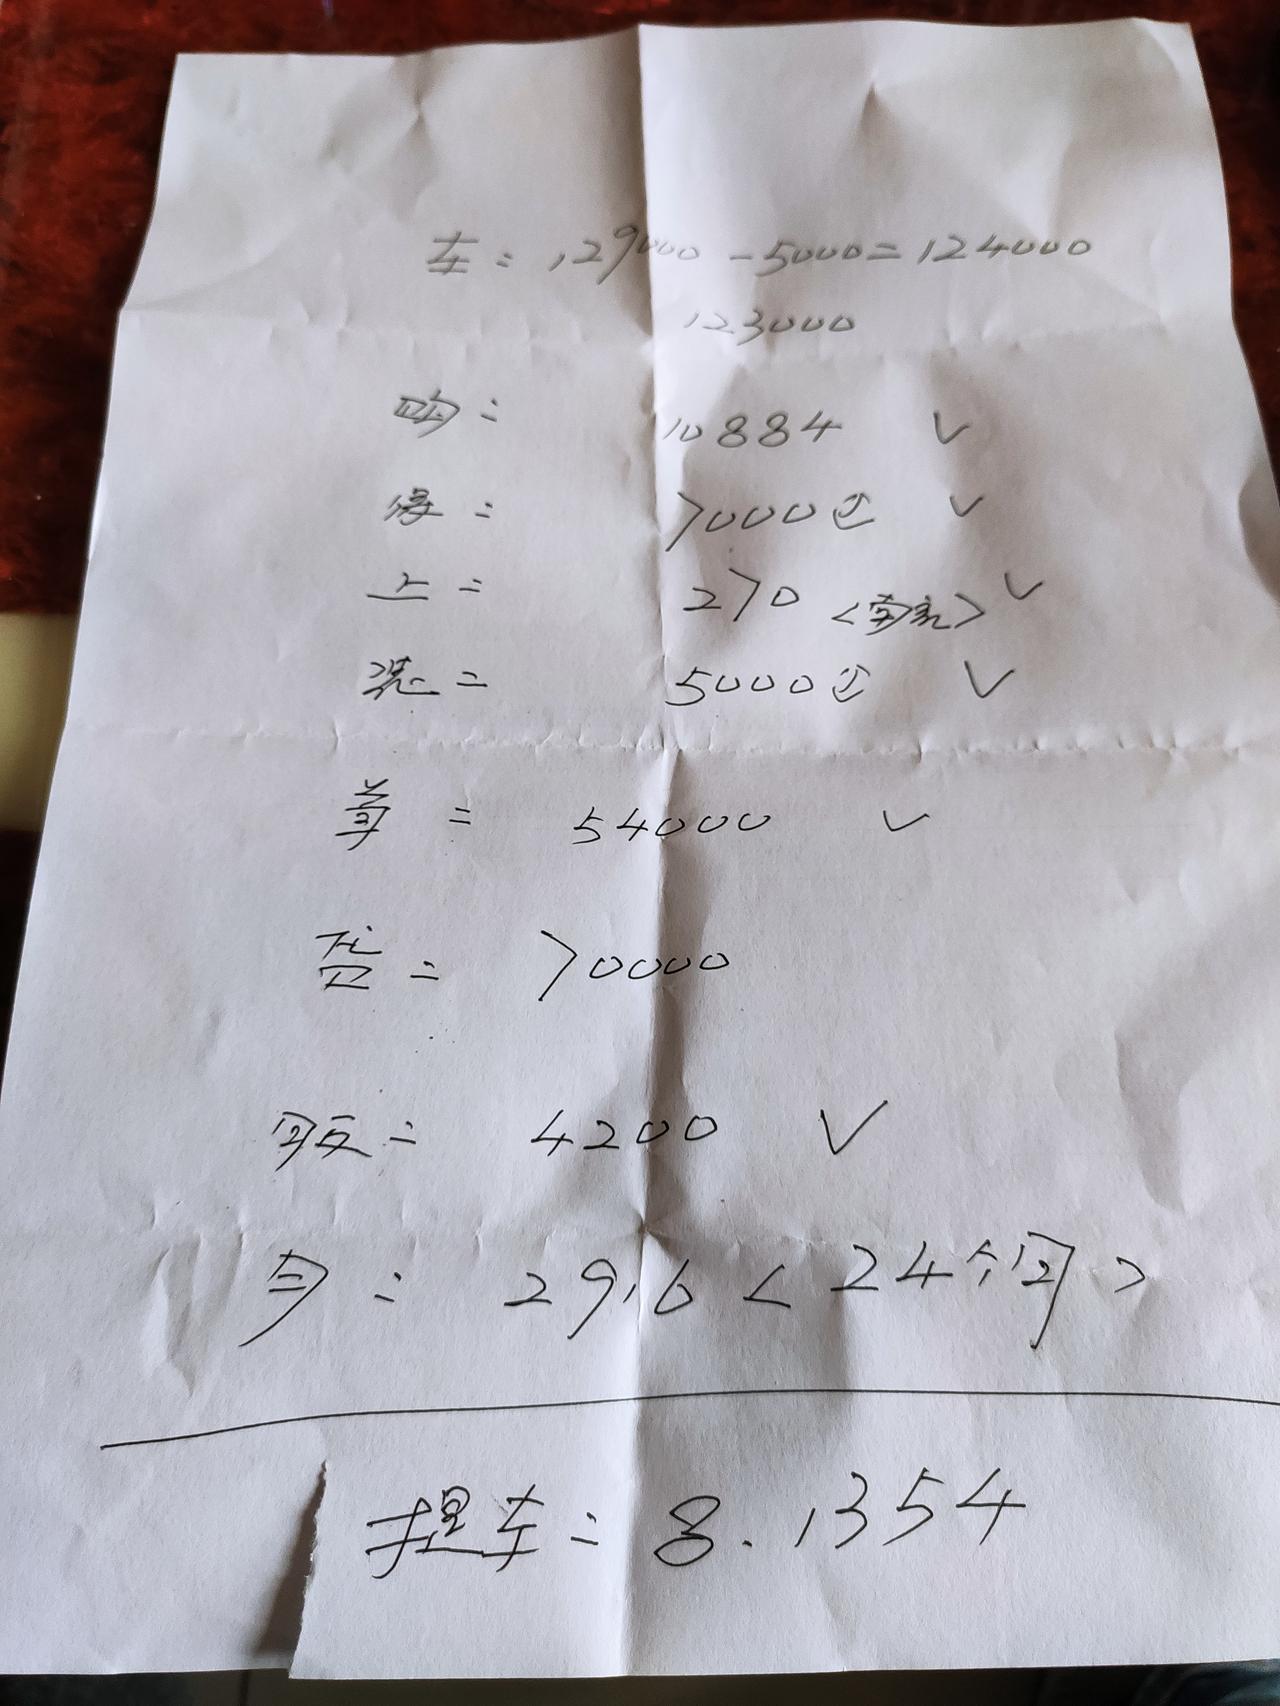 车: 129000-5000=124000
123000
购: 10884 √
保: 7000 √
上: 270 √
5000 √
首= 54000 √
贷= 70000
服= 4200 √
月: 2916 <24个月>
提车= 8.1354